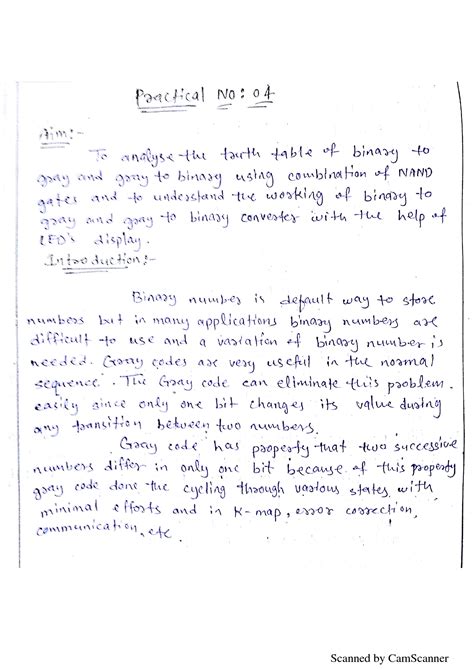 Practical No: 04
Aim:-
To analyse the truth table of binary to
gray and gray to binary using combination of NAND
gates and to understand the working of binary to
gray and gray to binary converter with the help of
LED's display.
Introduction:-
Binary number is default way to store
numbers but in many applications binary numbers are
difficult to use and a variation of binary number is
needed. Gray codes are very useful in the normal
sequence. The Gray code can eliminate this problem
easily since only one bit changes its value during
any transition between two numbers.
Gray code has property that two successive
numbers differ in only one bit because of this property
gray code done the cycling through various states with
minimal efforts and in K-map, error correction,
communication, etc.
Scanned by CamScanner